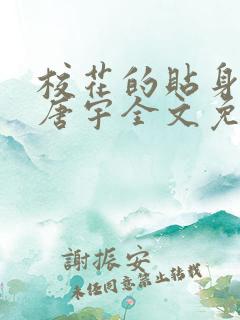 校花的贴身
唐宇全文免
謝振安
未经同意禁止转载